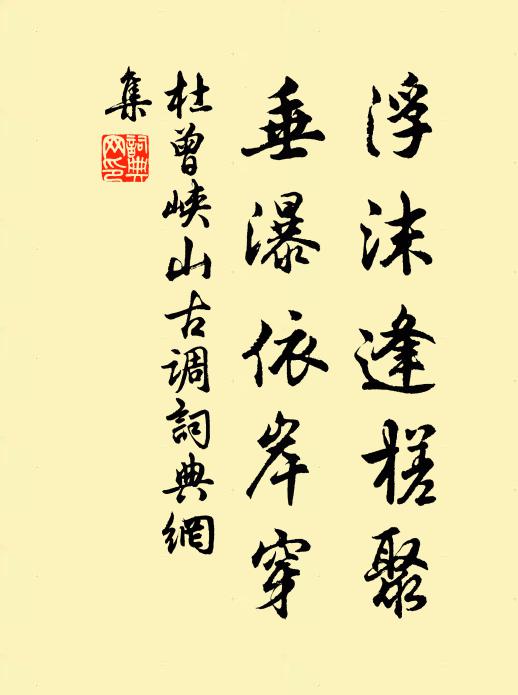 浮沫逢槎聚
垂瀑依岸穿
杜曾峡山古调詞典網
集
詞典
网印